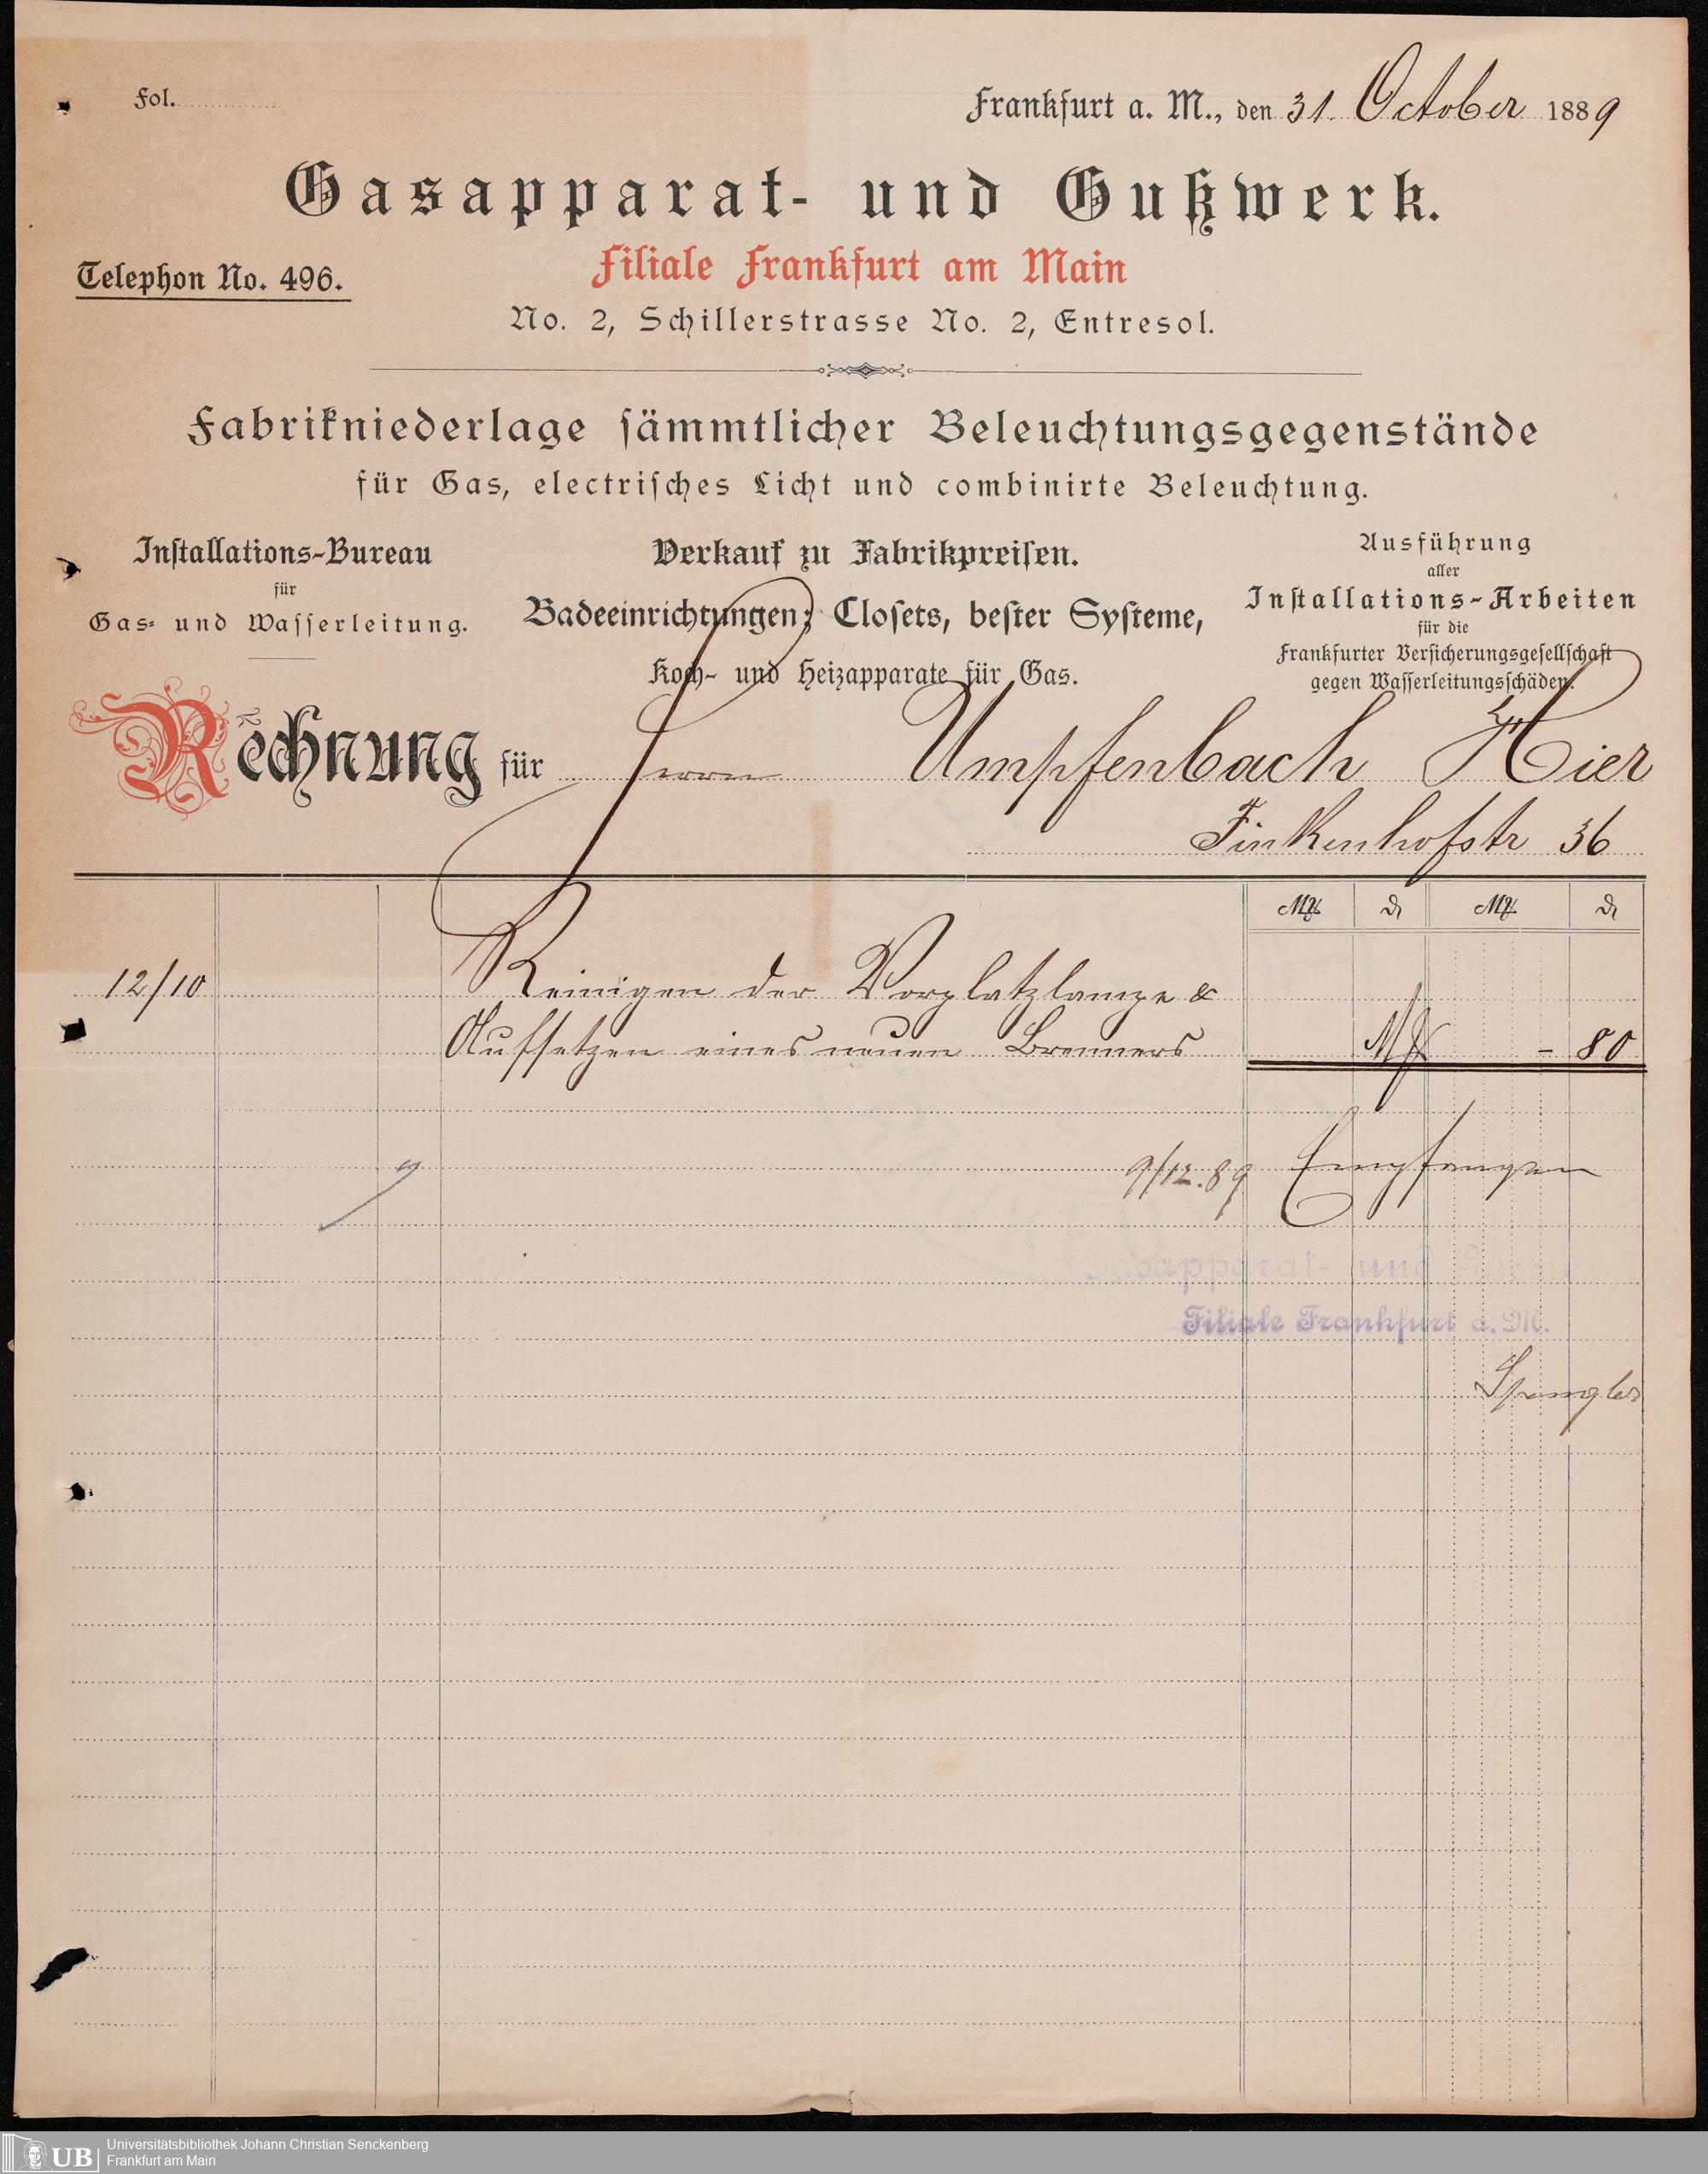 Fol.
Frankfurt a. M., den 31. October 1889
Gasapparat- und Gußwerk.
Filiale Frankfurt am Main
Telephon No. 496.
No. 2, Schillerstrasse No. 2, Entresol.
Fabrikniederlage sämmtlicher Beleuchtungsgegenstände
für Gas, electrisches Licht und combinirte Beleuchtung.
Installations-Bureau
für
Gas- und Wasserleitung.
Verkauf zu Fabrikpreisen.
Badeeinrichtungen, Closets, bester Systeme,
Koch- und Heizapparate für Gas.
Ausführung
aller
Installations-Arbeiten
für die
Frankfurter Versicherungsgesellschaft
gegen Wasserleitungsschäden.
Rechnung für Herrn Umpfenbach Hier
Finkenhofstr 36
Mk ₰ Mk ₰
12/10 Reinigen der Vorplatzlampe &
Aufsetzen eines neuen Brenners Mk - 80
9/12.89 Empfangen
Gasapparat- und
Filiale Frankfurt a. M.
Spengler
UB Universitätsbibliothek Johann Christian Senckenberg
Frankfurt am Main